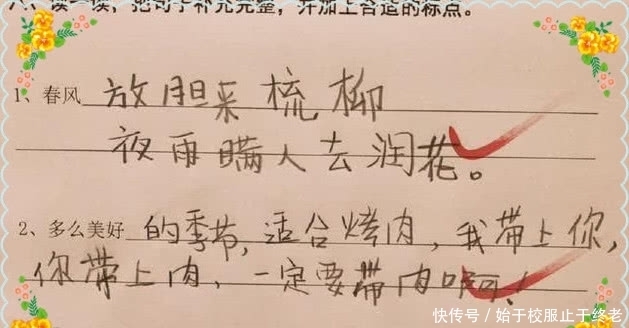 六、读一读，把句子补充完整，并加上合适的标点。
1、春风 放胆来梳柳
夜雨瞒人去润花。
2、多么美好 的季节,适合烤肉,我带上你,
你带上肉,一定要带肉啊!
快传号／始于校服止于终老